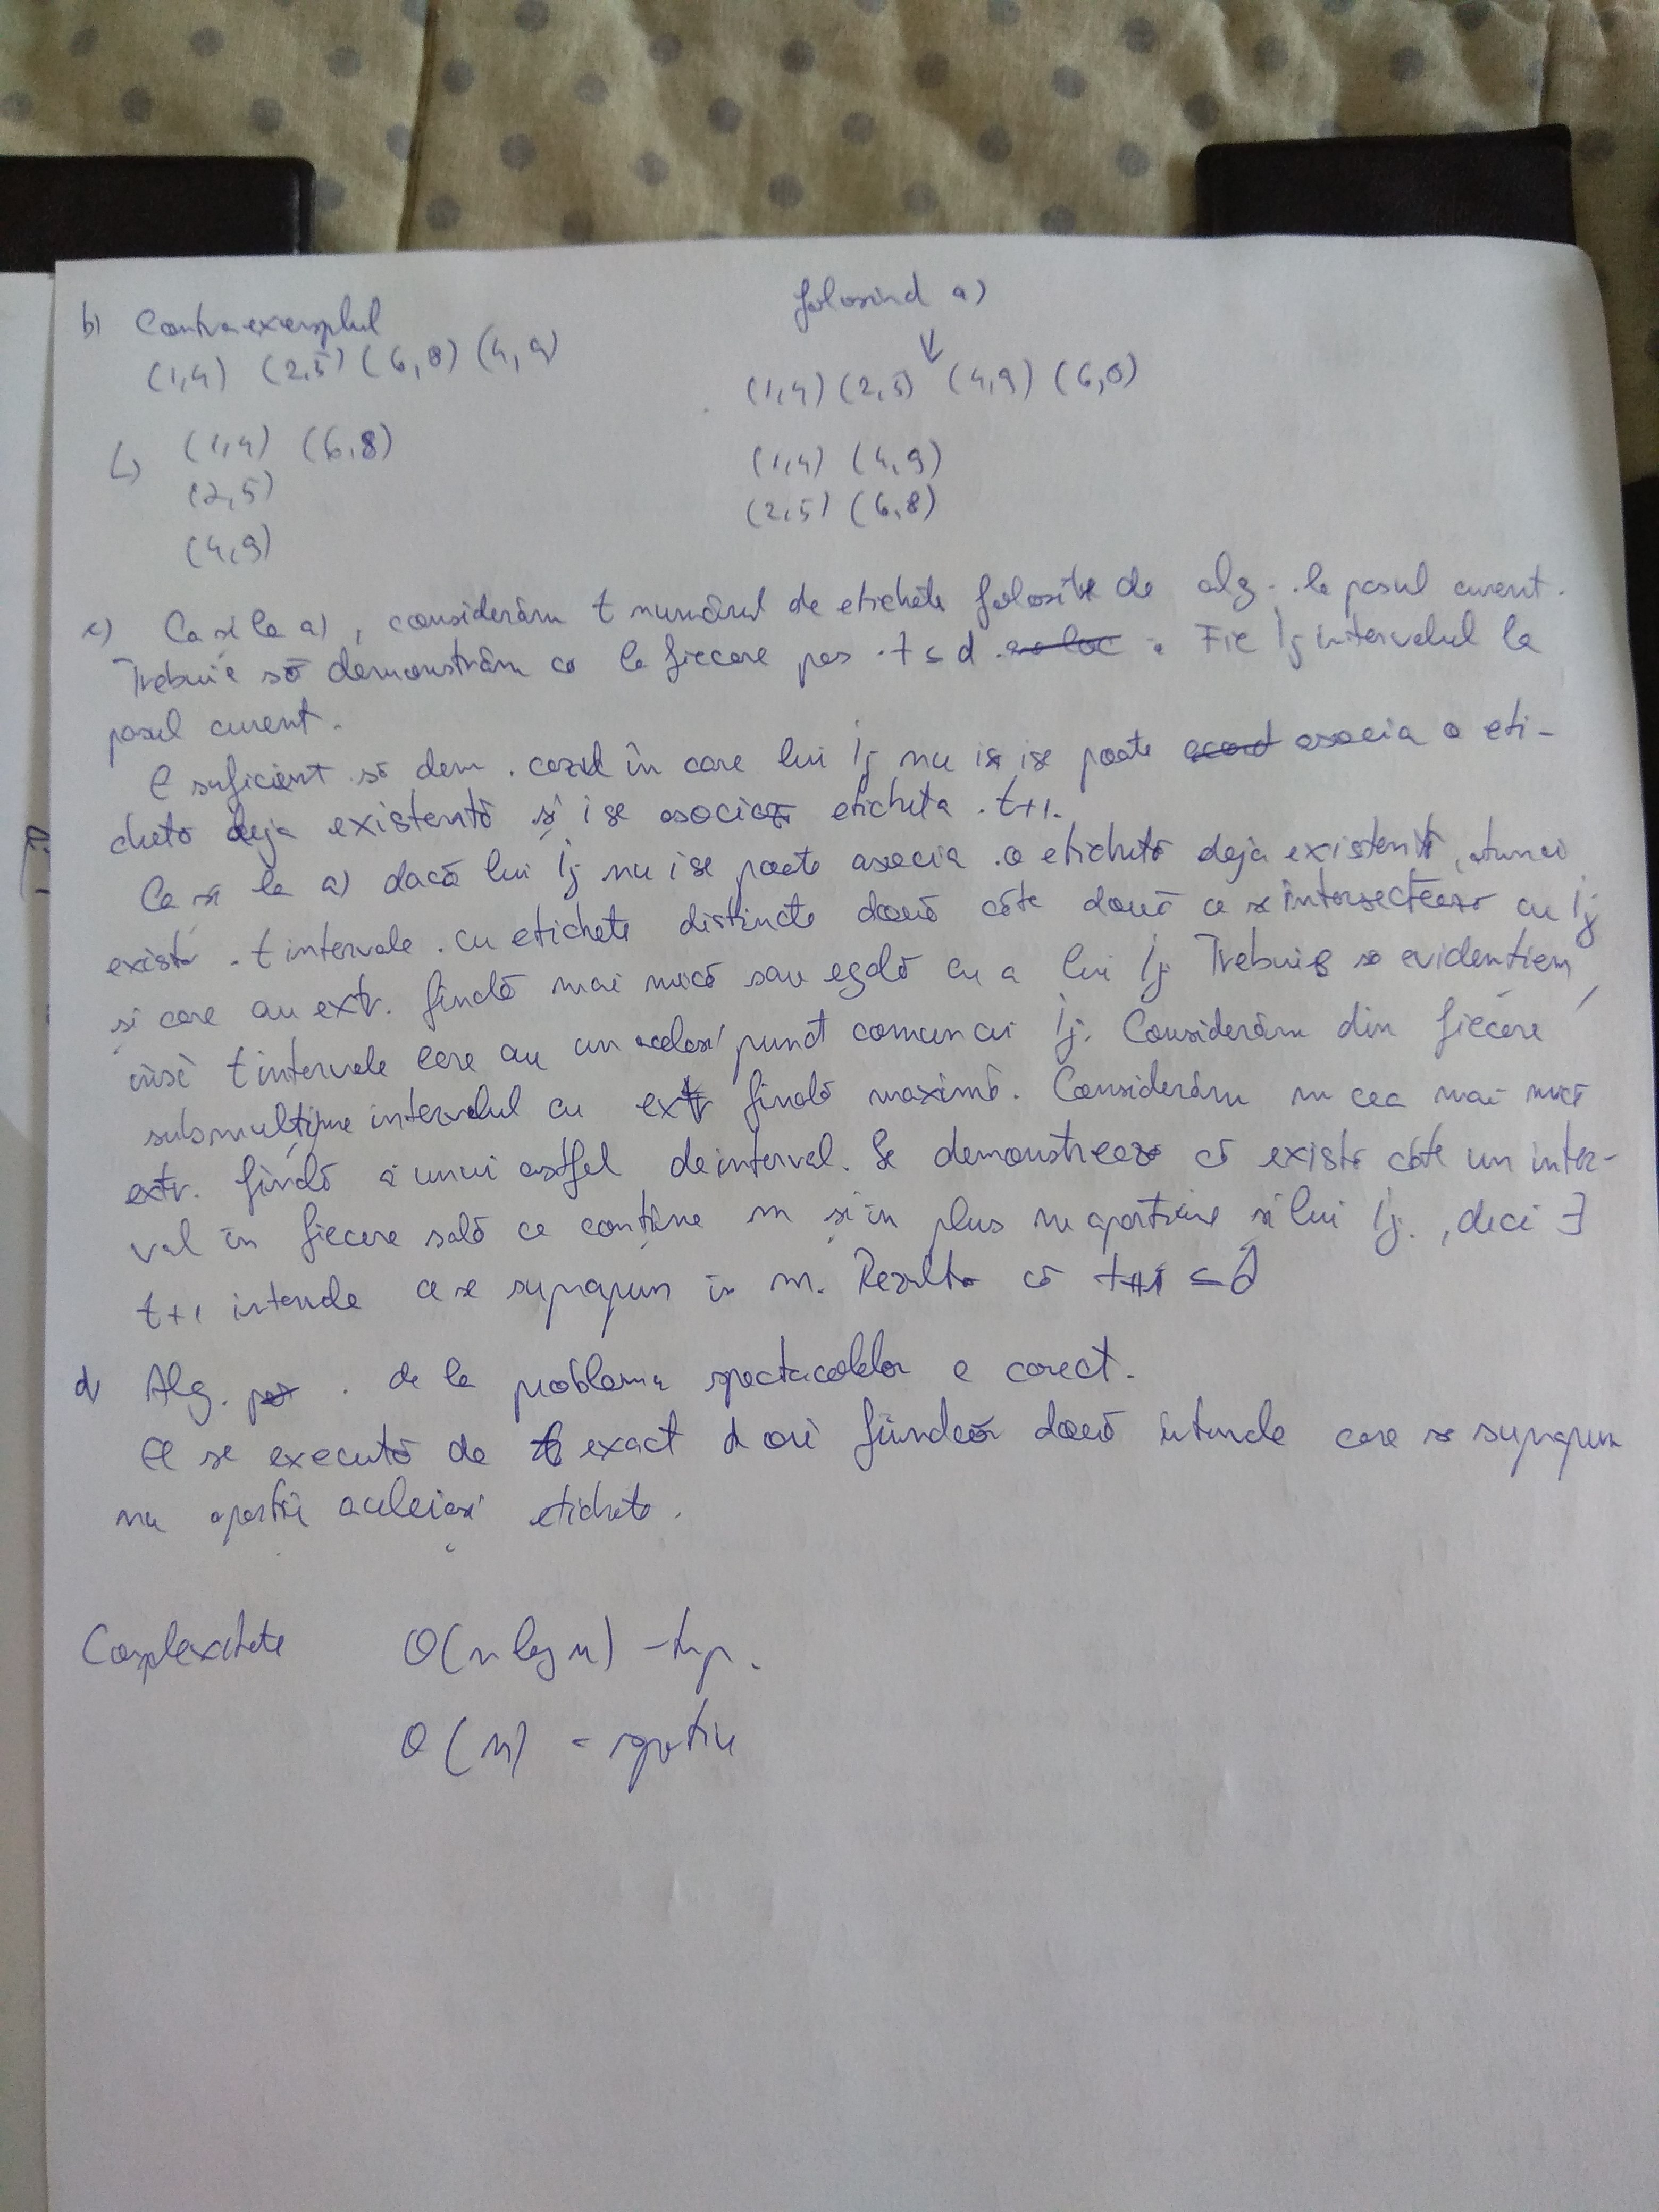 b) Contraexemplul
(1,4) (2,5) (6,8) (4,9)
(1,4) (6,8)
(2,5)
(4,9)
folosind a)
(1,4) (2,5) (4,9) (6,8)
(1,4) (4,9)
(2,5) (6,8)
c) Ca și la a), considerăm t numărul de etichete folosite de alg. la pasul curent.
Trebuie să demonstrăm că la fiecare pas t ≤ d. Fie Ij intervalul la
pasul curent.
E suficient să dem. cazul în care lui Ij nu i se poate asocia o eti-
chetă deja existentă și i se asociază eticheta t+1.
Ca și la a) dacă lui Ij nu i se poate asocia o etichetă deja existentă, atunci
există t intervale cu etichete distincte două câte două ce se intersectează cu Ij
și care au extr. finală mai mică sau egală cu a lui Ij. Trebuie să evidențiem
însă t intervale care au un același punct comun cu Ij. Considerăm din fiecare
submulțime intervalul cu extr finală maximă. Considerăm m cea mai mică
extr. finală a unui astfel de interval. Se demonstrează că există câte un inter-
val în fiecare sală ce conține m și în plus m aparține și lui Ij, deci ∃
t+1 intervale ce se suprapun în m. Rezultă că t+1 ≤ d
d) Alg. de la problema spectacolelor e corect.
El se execută de exact d ori fiindcă două intervale care se suprapun
nu aparțin aceleiași etichete.
Complexitate O(n log n) - timp.
O(n) - spațiu